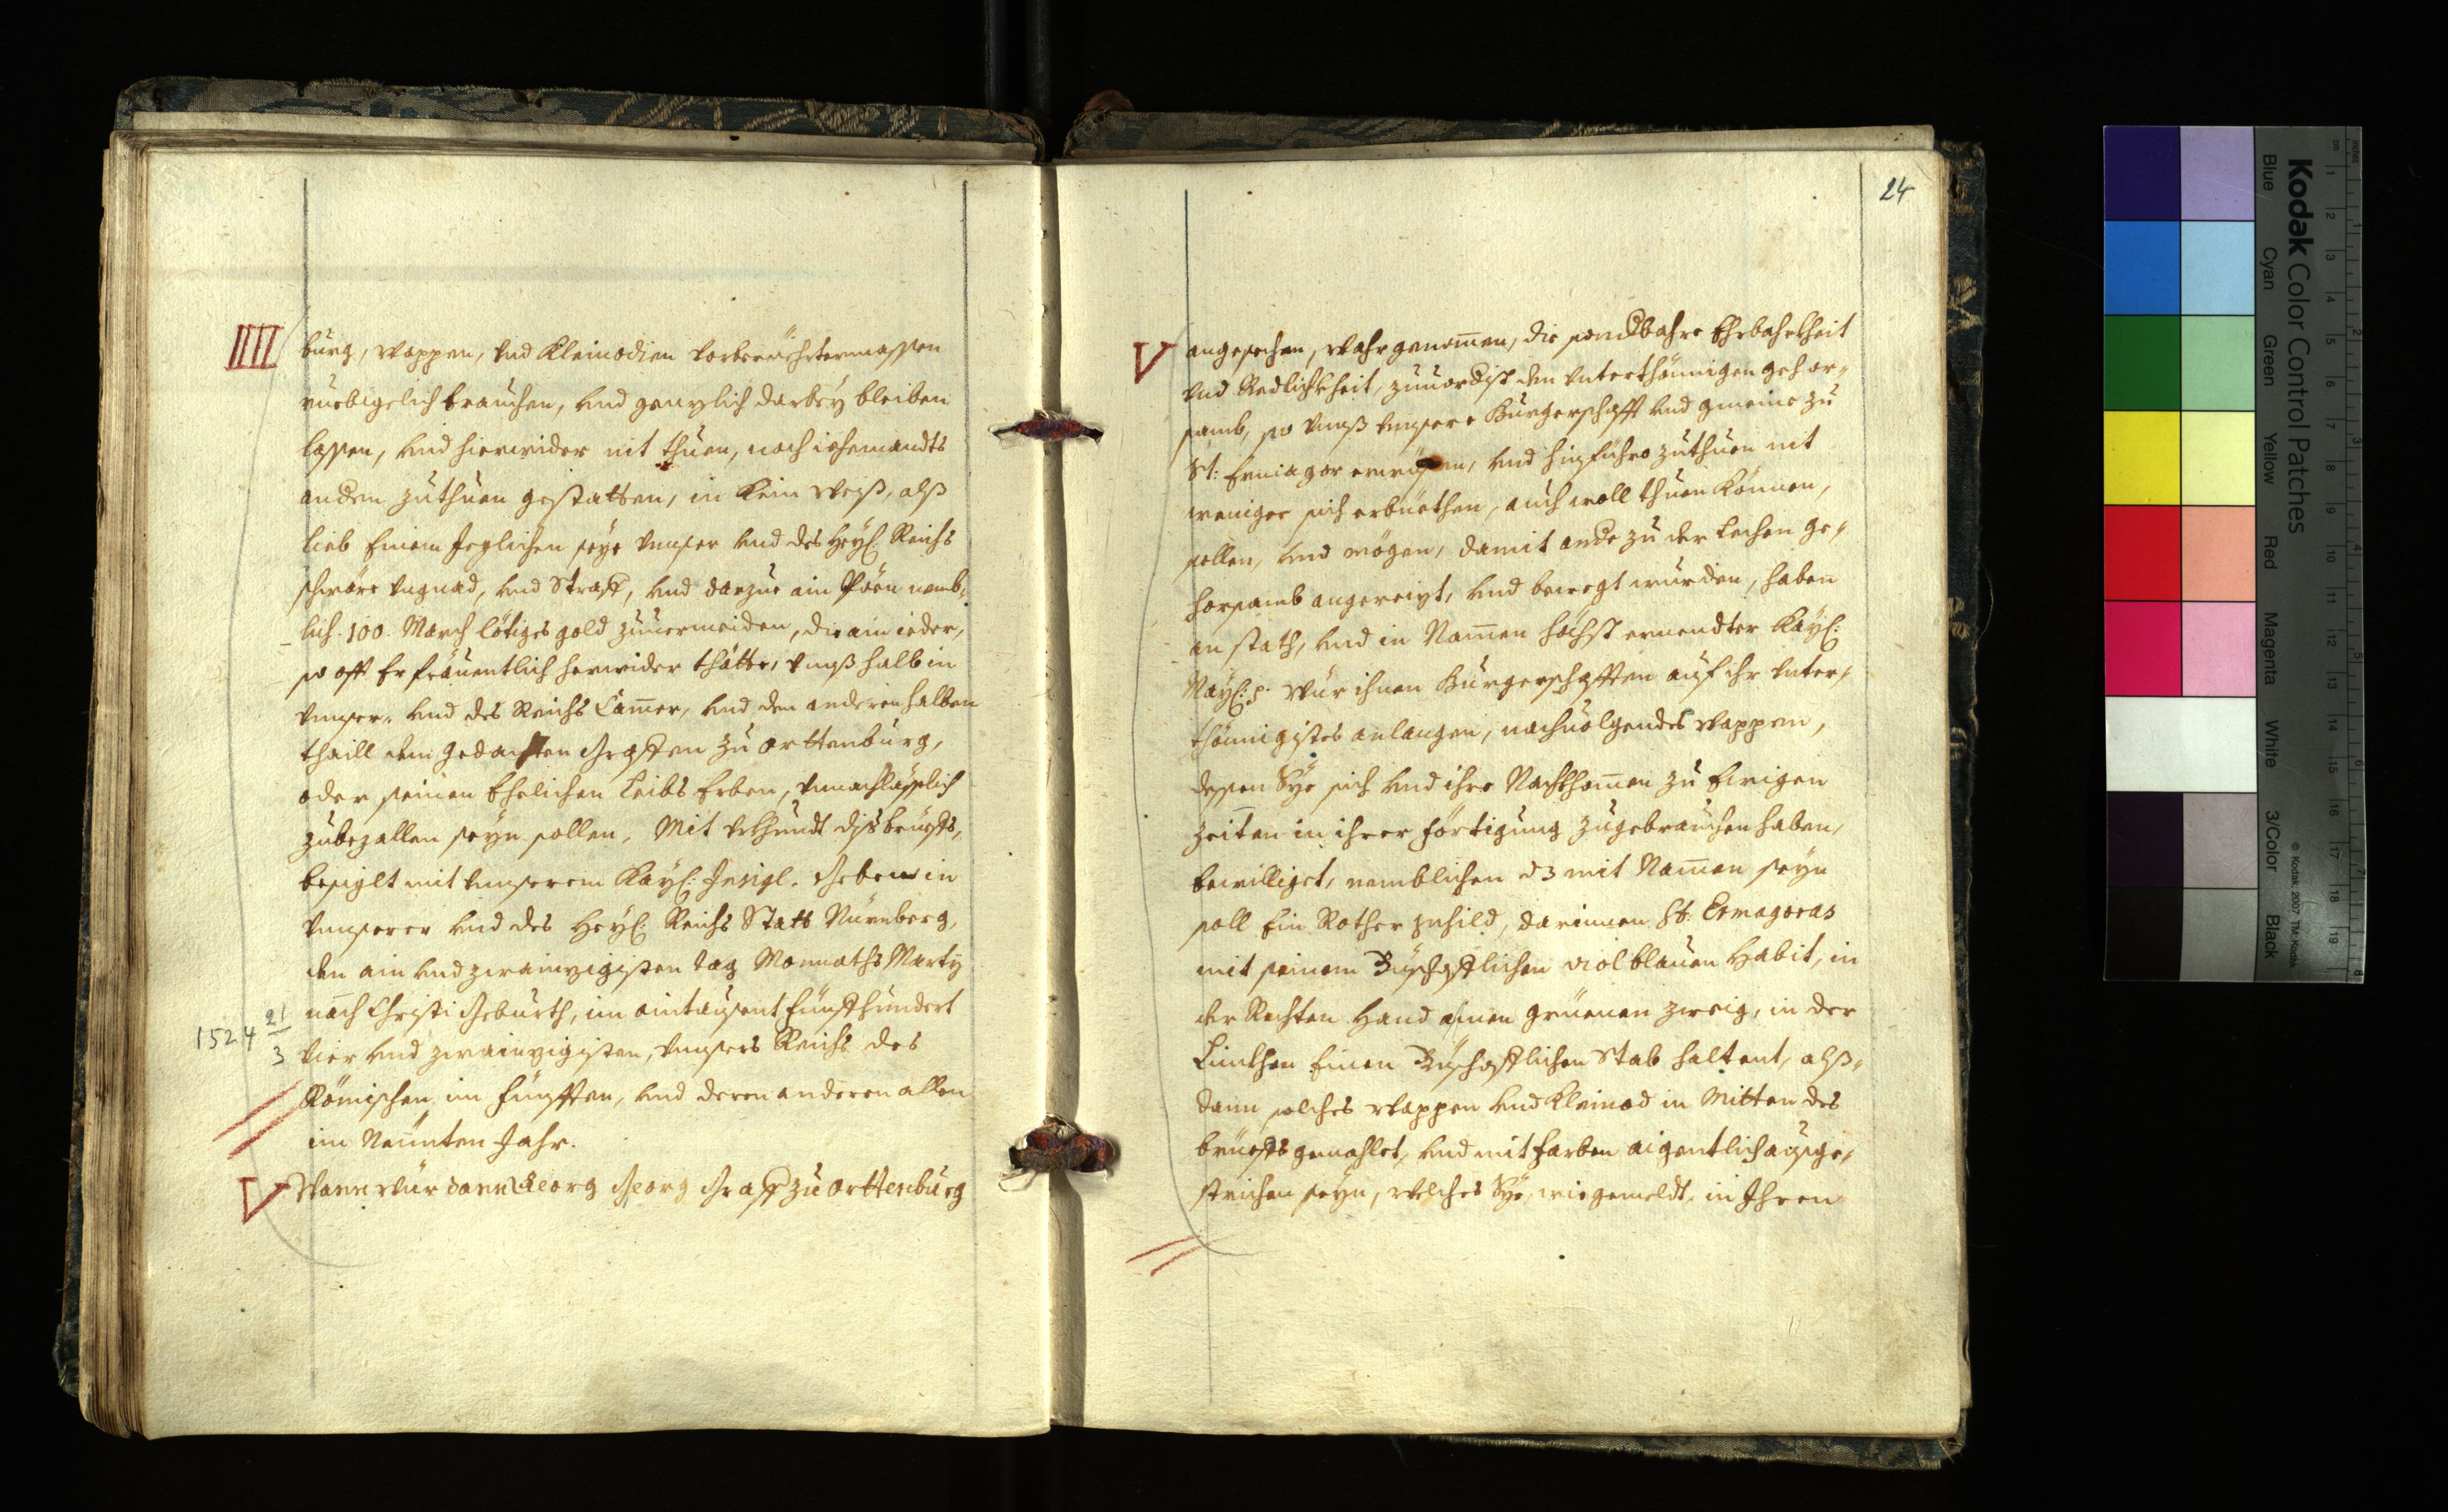 IIII
burg, Wappen, vnd Kleinodien vorberüehrtermassen
ruebigelich brauchen, vnd genzlich darbeÿ bleiben
lassen, vnd hierwider nit thuen, noch iehemandts
andern zuthuen gestatten, in kein Weiß, alß
lieb Einem Jeglichen seÿe vnser vnd des Heÿl: Reichs
schwäre vngnad, vnd Straff, vnd darzue ain Pöen nemb,
lich. 100. March lötiges gold zuuermeiden, die ain ieder,
so offt Er fräuentlich herwider thätte, vnß halb in
vnser, vnd des Reichs Camer, vnd den anderen halben
thaill dem gedachten Graffen zu Orttenburg,
oder seinen Ehelichen Leibs Erben, vnnachläßlich
zubezallen seÿn sollen. Mit vrkhundt diß brüeffs,
besiglt mit vnserem Kaÿl: Insigl. Geben in
vnserer vnd des Heÿl: Reichs Statt Nürnberg,
den ain vnd zwainzigisten tag Monnaths Martÿ
nach Christi Geburth, im aintausent fünffhundert
1524 21/3
Vier vnd zwainzigisten, vnsers Reichs des
Römischen im fünfften, vnd deren anderen allen
im Neünten Jahr.
V
Wann Wür dann Georg Graff zu Orttenburg
24
V
angesechen, wahrgenomen, die sondbahre Ehrbahrkheit
vnd Redlichkheit, zuuordist den vnterthönnigen gehor,
samb, so vnß vnsere Burgerschafft vnd gmeine zu
St: Ermagor erwisen, vnd hinführo zuthuen nit
weniger sich erbüethen, auch woll thuen können,
sollen, vnd mögen, damit ande zu der Lechen ge,
horsamb angereizt, vnd bewegt wurden, haben
an stath, vnd in Namen höchst ernendter Kaÿl:
Maÿl: p. Wür ihnen Burgerschafften auf ihr vnter,
thönnigistes anlangen, nachuolgendes Wappen,
dessen Sÿe sich vnd ihre Nachkhomen zu Ewigen
zeiten in ihrer förtigung zugebrauchen haben,
bewilliget, nemblichen d3 mit Namen seÿn
soll Ein Rother schild, darinnen St: Ermagoras
mit seinem Bischofflichen violblauen Habit, in
der Rechten Hand ainen grüenen zweig, in der
Linkhen Einen Bischofflichen Stab haltent, alß,
dann solches Wappen vnd Kleinod in Mitten des
brüeffs gemahlet, vnd mit farben aigentlich aufge,
strichen seÿn, welches Sÿe, wie gemeldt, in Ihren